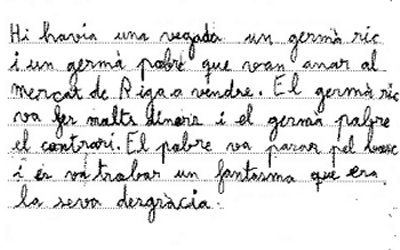 Hi havia una vegada un germà ric
i un germà pobre que van anar al
mercat de Riga a vendre. El germà ric
va fer malts diners i el germà pabre
el contrari. El pabre va parar pel
i es va trabar un fantasma que era
la seva desgràcia.